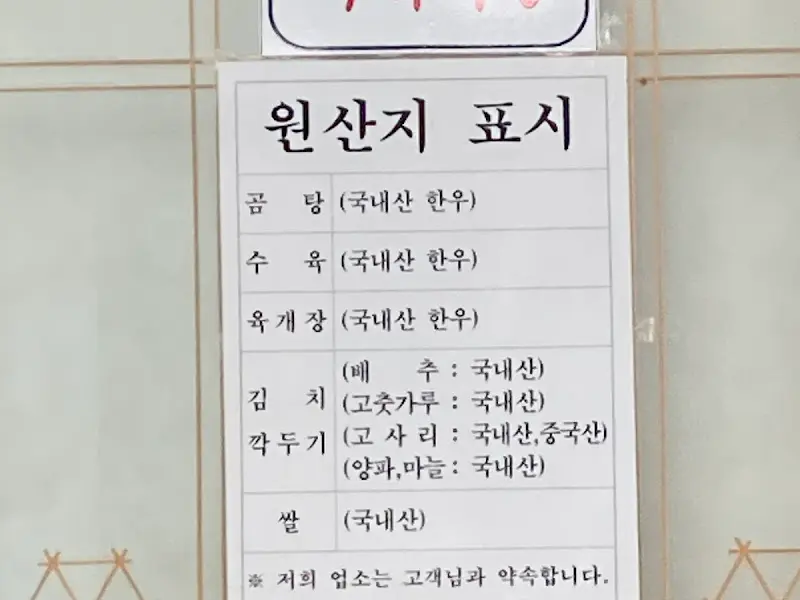 원산지 표시
곰 탕 (국내산 한우)
수 육 (국내산 한우)
육개장 (국내산 한우)
김 치
깍두기
(배 추 : 국내산)
(고춧가루 : 국내산)
(고 사 리 : 국내산,중국산)
(양파,마늘 : 국내산)
쌀 (국내산)
※ 저희 업소는 고객님과 약속합니다.